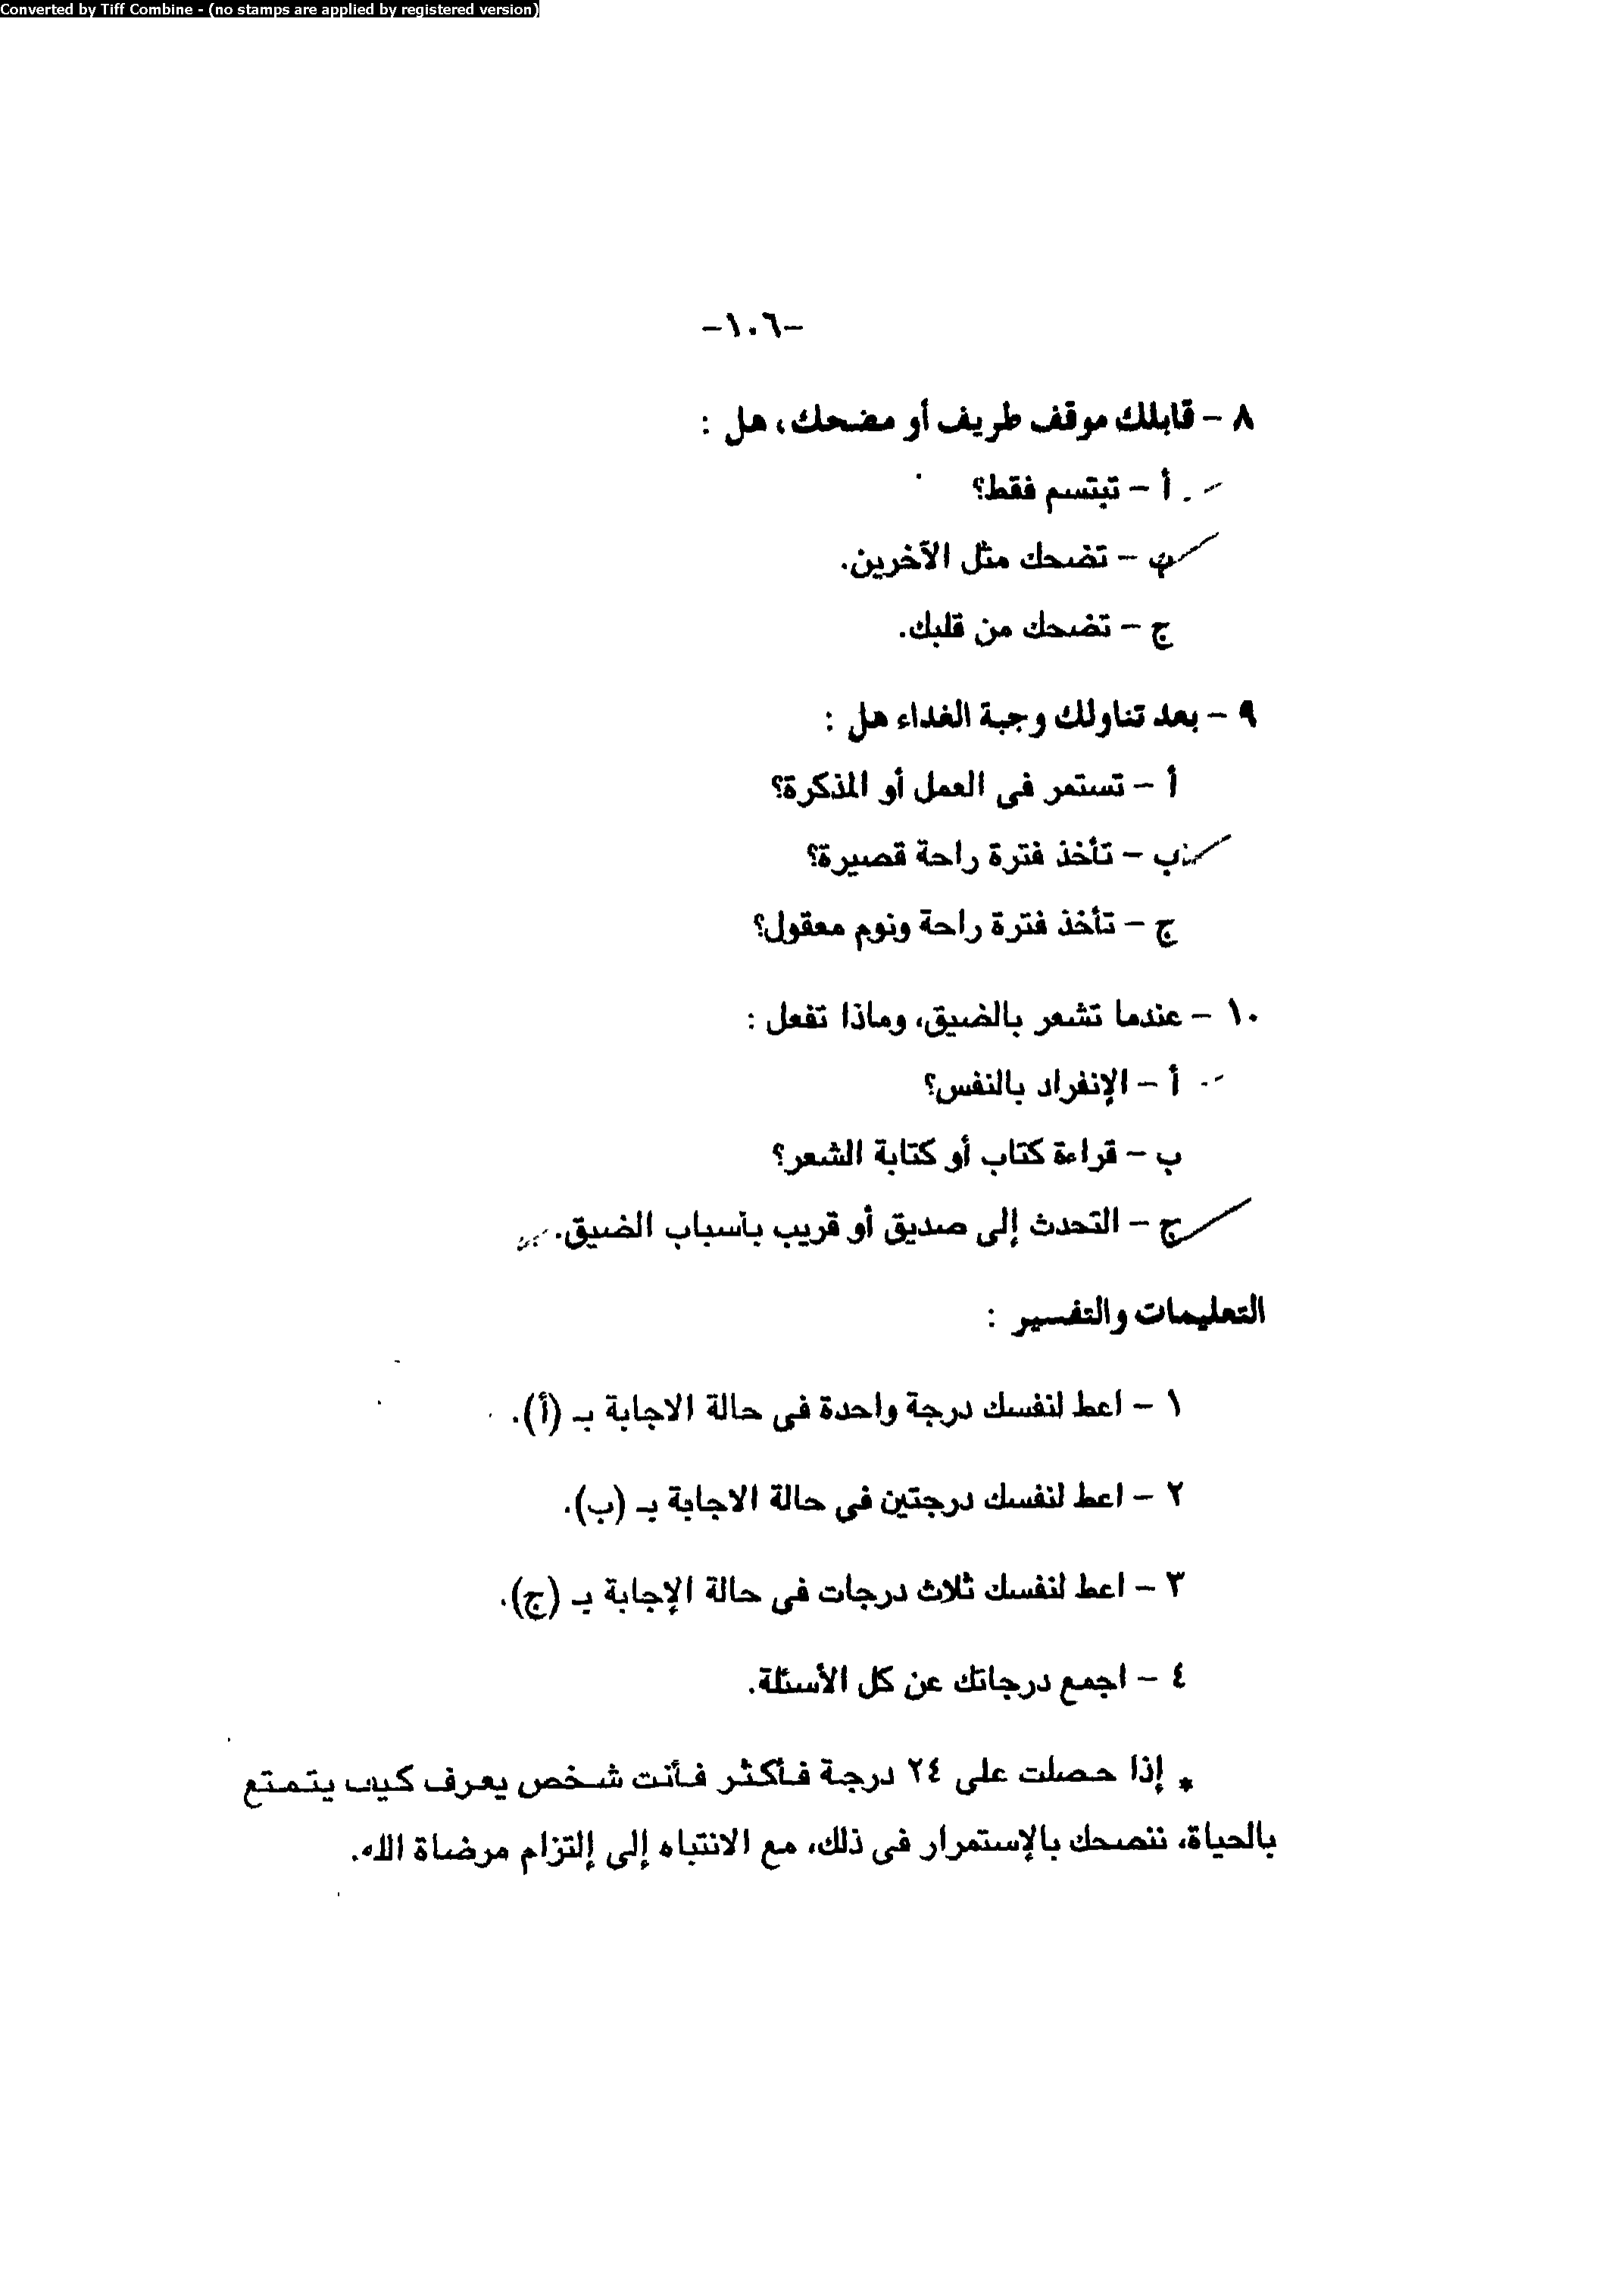 Converted by Tiff Combine - (no stamps are applied by registered version)
-١٠٦-
٨ - قابلك موقف طريف أو مضحك، هل :
أ - تبتسم فقط؟
ب - تضحك مثل الآخرين.
ج - تضحك من قلبك.
٩ - بعد تناولك وجبة الغداء هل :
أ - تستمر فى العمل أو المذكرة؟
ب - تأخذ فترة راحة قصيرة؟
ج - تأخذ فترة راحة ونوم معقول؟
١٠ - عندما تشعر بالضيق، وماذا تفعل :
أ - الإنفراد بالنفس؟
ب - قراءة كتاب أو كتابة الشعر؟
ج - التحدث إلى صديق أو قريب بأسباب الضيق.
التعليمات والتفسير :
١ - اعط لنفسك درجة واحدة فى حالة الاجابة بـ (أ).
٢ - اعط لنفسك درجتين فى حالة الاجابة بـ (ب).
٣ - اعط لنفسك ثلاث درجات فى حالة الإجابة بـ (ج).
٤ - اجمع درجاتك عن كل الأسئلة.
* إذا حصلت على ٢٤ درجة فأكثر فأنت شخص يعرف كيف يتمتع
بالحياة، ننصحك بالإستمرار فى ذلك، مع الانتباه إلى إلتزام مرضاة الله.